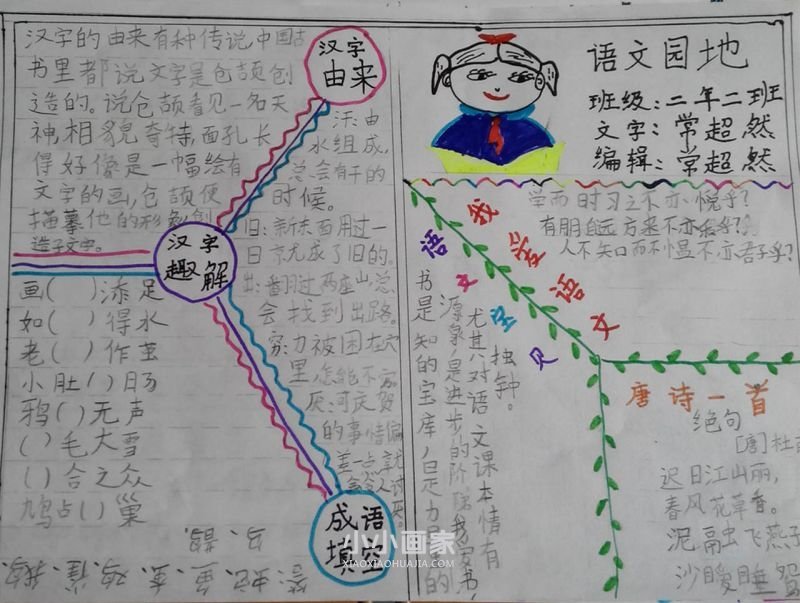 汉字的由来有种传说,中国古
书里都说文字是仓颉创
造的。说仓颉看见一名天
神,相貌奇特,面孔长
得好像是一幅绘有
文字的画,仓颉便
描摹他的形象创
造了文字。
汉字
由来
汉字
趣解
由
水组成,
总会有干的
时候。
旧:新东西用过一
日就成了旧的。
出:翻过两座山总
会找到出路。
穷:力被困在穴
里
的事情偏
差一点
画( )添足
如( )得水
老( )作茧
小肚( )肠
鸦( )无声
( )毛大雪
( )合之众
鸠占( )巢
成语
填空
语文园地
班级:二年二班
文字:常超然
编辑:常超然
学而时习之不亦悦乎?
有朋自远方来不亦乐乎?
人不知而不愠不亦君子乎?
我爱语文
语文宝贝
独钟。
尤其对语文课本情有
源泉,是进步的阶梯我爱书,
书是知的宝库,是力量的
唐诗一首
绝句
[唐]杜甫
迟日江山丽,
春风花草香。
泥融虫飞燕子
沙暖睡鸳
小小画家
XIAOXIAOHUAJIA.COM